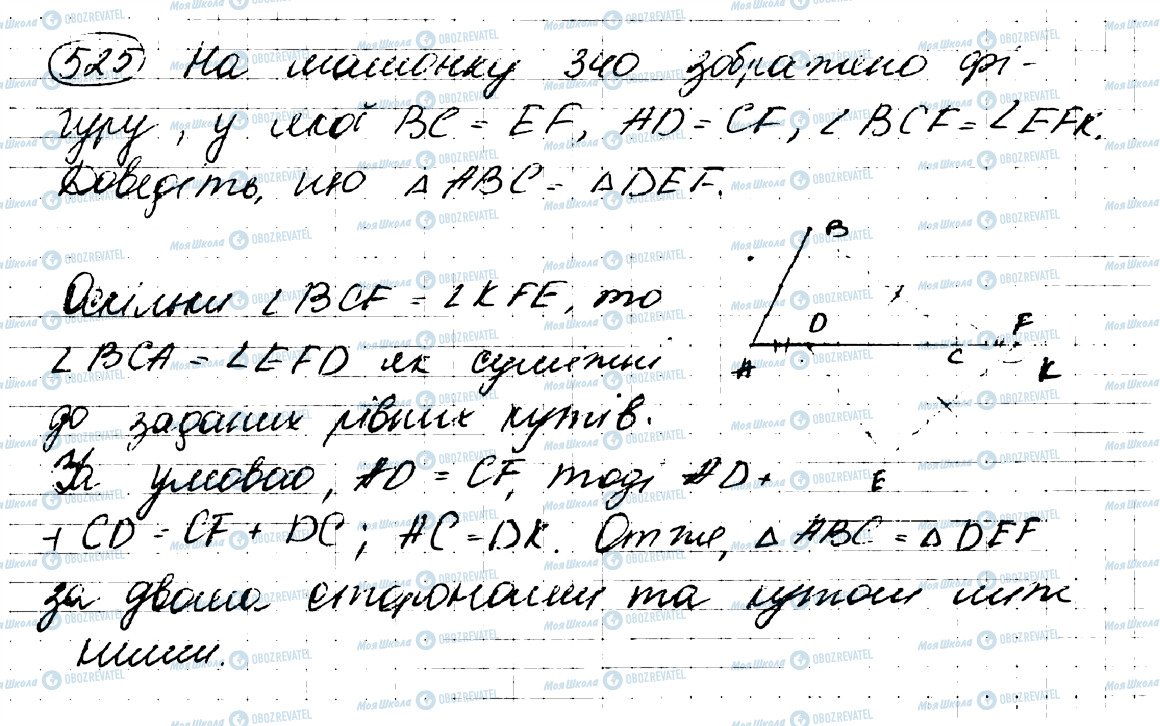 525 На малюнку 340 зображено фі-
гуру, у якої BC = EF, AD = CF, ∠BCF = ∠EFK.
Доведіть, що △ABC = △DEF.
Оскільки ∠BCF = ∠KFE, то
∠BCA = ∠EFD як суміжні
до заданих рівних кутів.
За умовою, AD = CF, тоді AD +
+ CD = CF + DC; AC = DK. Отже, △ABC = △DEF
за двома сторонами та кутом між
ними.
B
D
F
A
C
K
E
МояШкола OBOZREVATEL